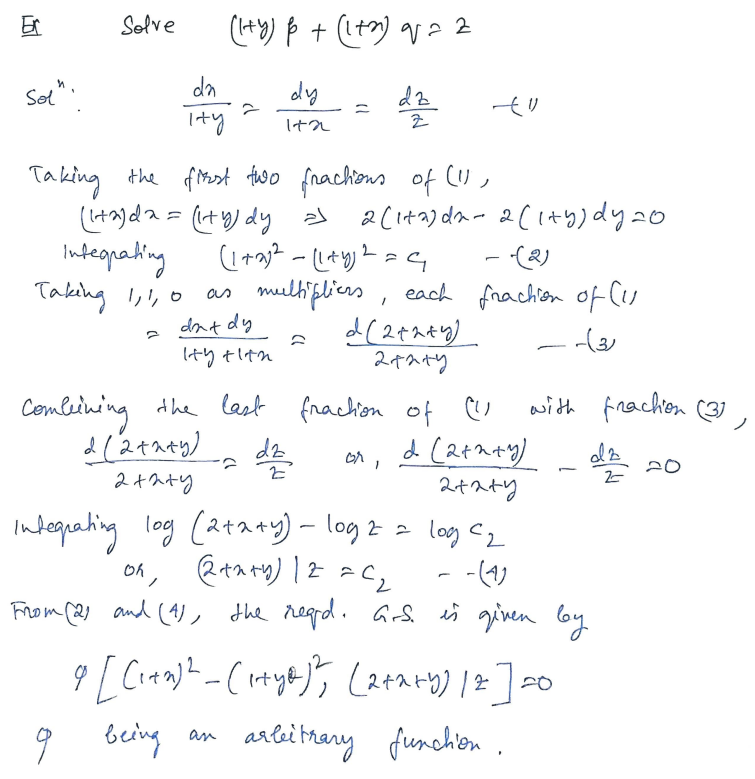 Ex Solve (1+y) p + (1+x) q = z
Solⁿ: dx/1+y = dy/1+x = dz/z —(1)
Taking the first two fractions of (1),
(1+x)dx = (1+y)dy ⇒ 2(1+x)dx - 2(1+y)dy = 0
Integrating (1+x)² - (1+y)² = C₁ —(2)
Taking 1, 1, 0 as multipliers, each fraction of (1)
= dx+dy/1+y+1+x = d(2+x+y)/2+x+y —(3)
Combining the last fraction of (1) with fraction (3),
d(2+x+y)/2+x+y = dz/z or, d(2+x+y)/2+x+y - dz/z = 0
Integrating log (2+x+y) - log z = log C₂
or, (2+x+y) | z = C₂ --(4)
From (2) and (4), the reqd. G.S. is given by
φ[(1+x)² - (1+y)², (2+x+y) | z] = 0
φ being an arbitrary function.